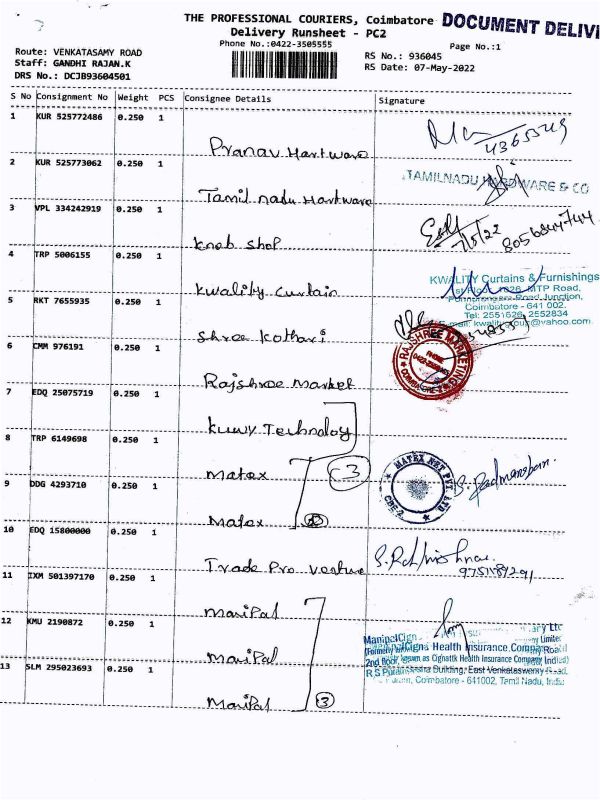 THE PROFESSIONAL COURIERS, Coimbatore DOCUMENT DELIVE
Delivery Runsheet - PC2
Phone No.:0422-3505555
Page No.:1
Route: VENKATASAMY ROAD
RS No.: 936045
Staff: GANDHI RAJAN.K
RS Date: 07-May-2022
DRS No.: DCJB93604501
S No Consignment No Weight PCS Consignee Details Signature
1 KUR 525772486 0.250 1
Pranav Hartware
4365549
2 KUR 525773062 0.250 1
TAMILNADU HARDWARE & CO
Tamil nadu Hartware
3 VPL 334242919 0.250 1
7/5/22
8056844744
Knob Shop
4 TRP 5006155 0.250 1
KWALITY Curtains & Furnishings
MTP Road,
Road Junction,
Coimbatore - 641 002.
Tel: 2551626, 2552834
Kwality Curtain
5 RKT 7655935 0.250 1
Shree Kothari
6 CMM 976191 0.250 1
RAJSHREE MARKETING
COIMBATORE
Rajshree Market
7 EDQ 25075719 0.250 1
Technology
8 TRP 6149698 0.250 1
Matex
3
MATEX NET PVT LTD
CBE-2
S. Padmanaban.
9 DDG 4293710 0.250 1
Matex
10 EDQ 15800000 0.250 1
Trade Pro Venture
11 IXM 501397170 0.250 1
Manipal
12 KMU 2190872 0.250 1
ManipalCigna Health Insurance Company
2nd floor, known as Cignattk Health Insurance Company Limited)
Building, East Venkatasamy Road,
Coimbatore - 641002, Tamil Nadu, India
Manipal
13 SLM 295023693 0.250 1
Manipal
3